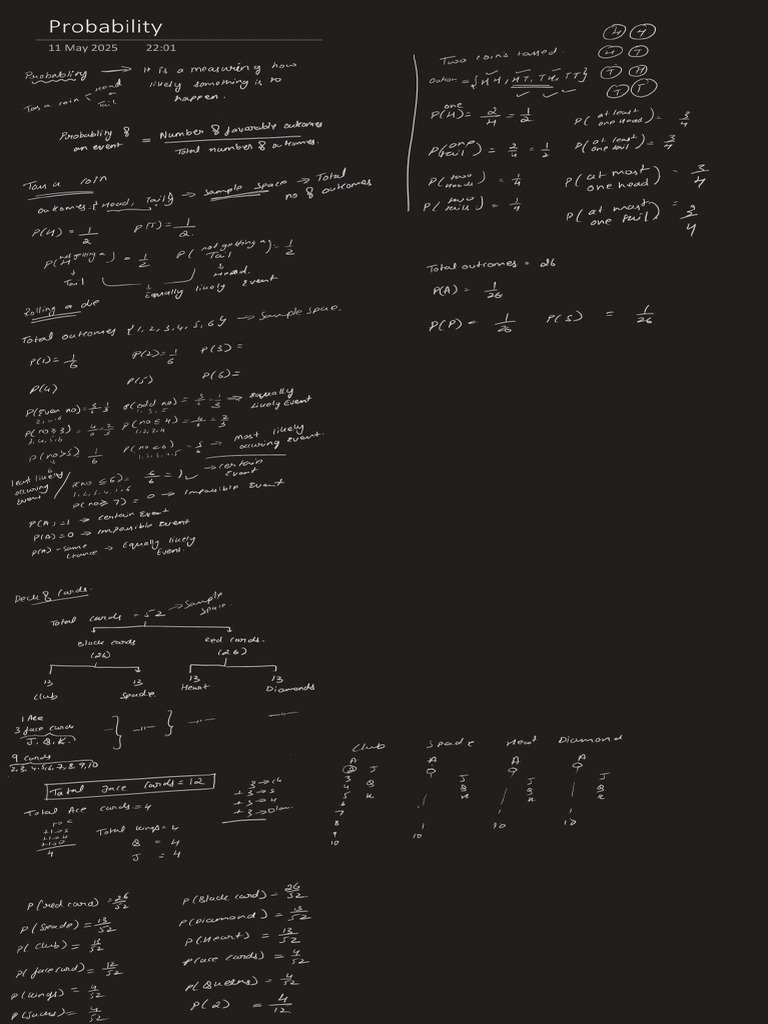 Probability
11 May 2025 22:01
Probability → It is a measuring how
likely something is to
happen.
Toss a coin < Head
or
Tail
Probability of an event = Number of favorable outcomes / Total number of outcomes.
Toss a coin
outcomes {Head, Tail} → Sample space → Total
no of outcomes
P(H) = 1/2 P(T) = 1/2
P(not getting a H) = 1/2 P(not getting a Tail) = 1/2
↓ Tail ↓ Head.
Equally likely Event
Rolling a die
Total outcomes {1, 2, 3, 4, 5, 6} → Sample space.
P(1) = 1/6 P(2) = 1/6 P(3) =
P(4) P(5) P(6) =
P(Even no) = 3/6 = 1/3 P(odd no) = 3/6 = 1/3 → Equally
likely Event
2, 4, 6 1, 3, 5
P(no ≥ 3) = 4/6 = 2/3 P(no ≤ 4) = 4/6 = 2/3
3, 4, 5, 6 1, 2, 3, 4
P(no > 5) 1/6 P(no < 6) = 5/6 → most likely
occuring event.
↓ 6 1, 2, 3, 4, 5
least likely
occuring
Event
P(no ≤ 6) = 6/6 = 1 ✓ → certain
Event
1, 2, 3, 4, 5, 6
P(no ≥ 7) = 0 → Impossible Event
P(A) = 1 → certain Event
P(A) = 0 → Impossible Event
P(A) - same
chance → Equally likely
Event.
Deck of Cards.
Total cards = 52 → Sample
Space.
Black cards Red cards.
(26) (26)
13 13 13 13
Club Spade Heart Diamonds
1 Ace
3 face cards
J, Q, K.
9 cards
2, 3, 4, 5, 6, 7, 8, 9, 10
Total Face cards = 12
Total Ace cards = 4
1 → C
+1 → S
+1 → H
+1 → D
4
Total kings = 4
Q = 4
J = 4
3 → Cl
+ 3 → S
+ 3 → H
+ 3 → Dia.
P(red card) = 26/52 P(Black card) = 26/52
P(Spade) = 13/52 P(Diamond) = 13/52
P(Club) = 13/52 P(Heart) = 13/52
P(face card) = 12/52 P(ace cards) = 4/52
P(kings) = 4/52 P(Queens) = 4/52
P(Jacks) = 4/52 P(2) = 4/12
Two coins tossed.
H H
H T
T H
T T
Outcom = {HH, HT, TH, TT}
P(one H) = 2/4 = 1/2 P(at least one head) = 3/4
P(one tail) = 2/4 = 1/2 P(at least one tail) = 3/4
P(two heads) = 1/4 P(at most one head) = 3/4
P(two tails) = 1/4 P(at most one tail) = 3/4
Total outcomes = 26
P(A) = 1/26
P(P) = 1/26 P(S) = 1/26
Club Spade Heat Diamond
A A A A
2 J Q Q Q
3 J J J
4 Q Q Q Q
5 K K K K
6
7
8 1 10 10
9
10 10